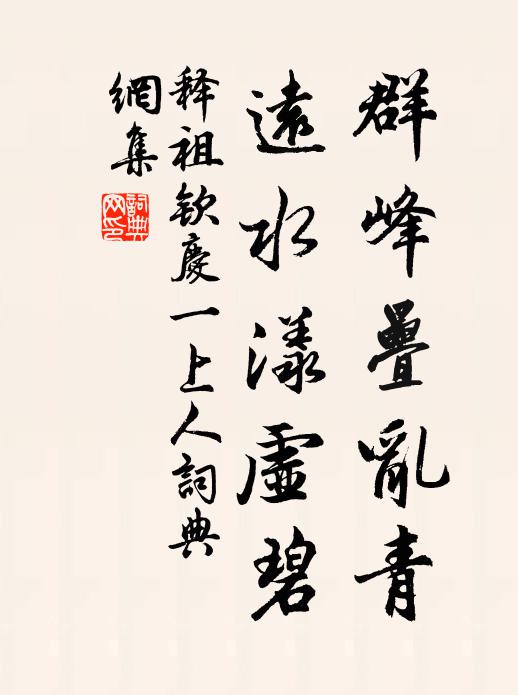 群峰疊亂青
遠水漾虛碧
释祖欽慶一上人詞典
網集
詞典
网印